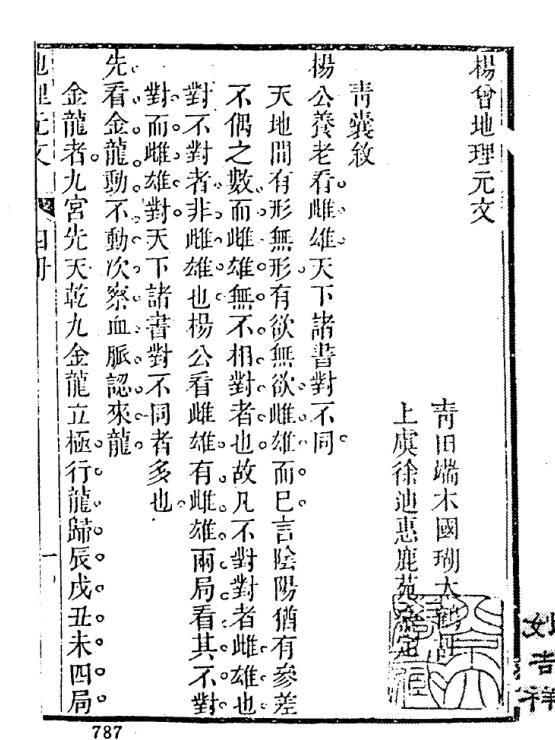 楊曾地理元文
青田端木國瑚太鶴
上虞徐迪惠鹿苑
青囊敘
楊公養老看雌雄天下諸書對不同
天地間有形無形有欲無欲雌雄而已言陰陽猶有參差
不偶之數而雌雄無不相對者也故凡不對對者雌雄也
對不對者非雌雄也楊公看雌雄有雌雄兩局看其不對
對而雌雄對天下諸書對不同者多也
先看金龍動不動次察血脈認來龍
金龍者九宮先天乾九金龍立極行龍歸辰戌丑未四局
地理元文 四冊 一
妙吉祥
787